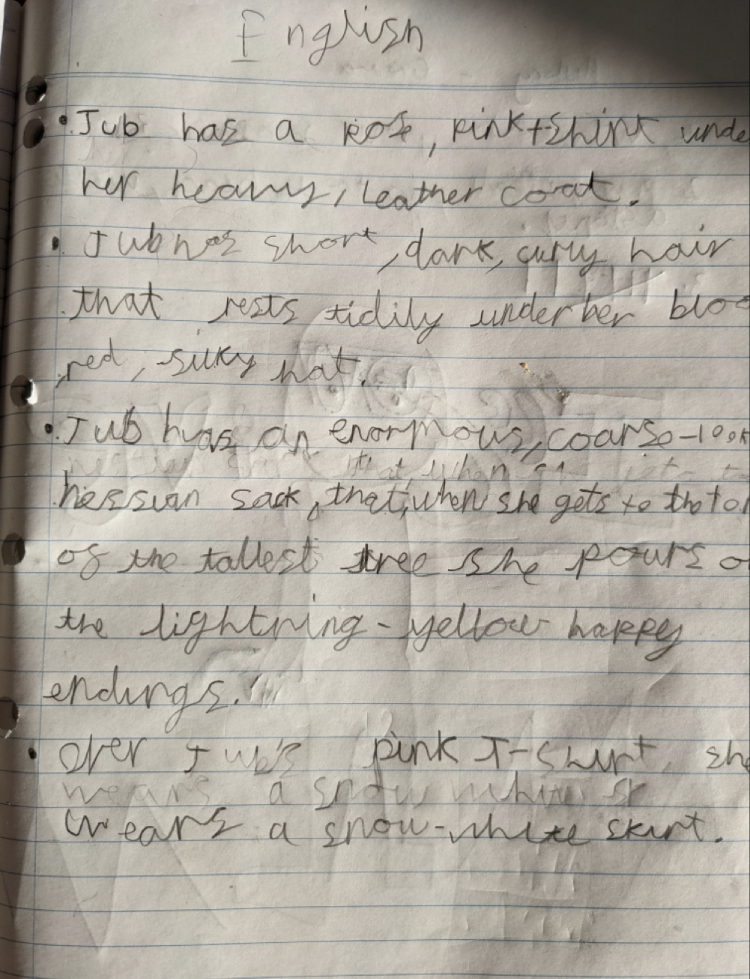 English
• Jub has a rose, pink tshirt unde
her heavy, leather coat.
• Jub has short, dark, curly hair
that rests tidily under her bloo
red, silky hat.
• Jub has an enormous, coarse-look
hessian sack, that, when she gets to the to
of the tallest tree she pours o
the lightning-yellow happy
endings.
• Over Jub's pink T-shirt, she
wears a snow white s
wears a snow-white skirt.